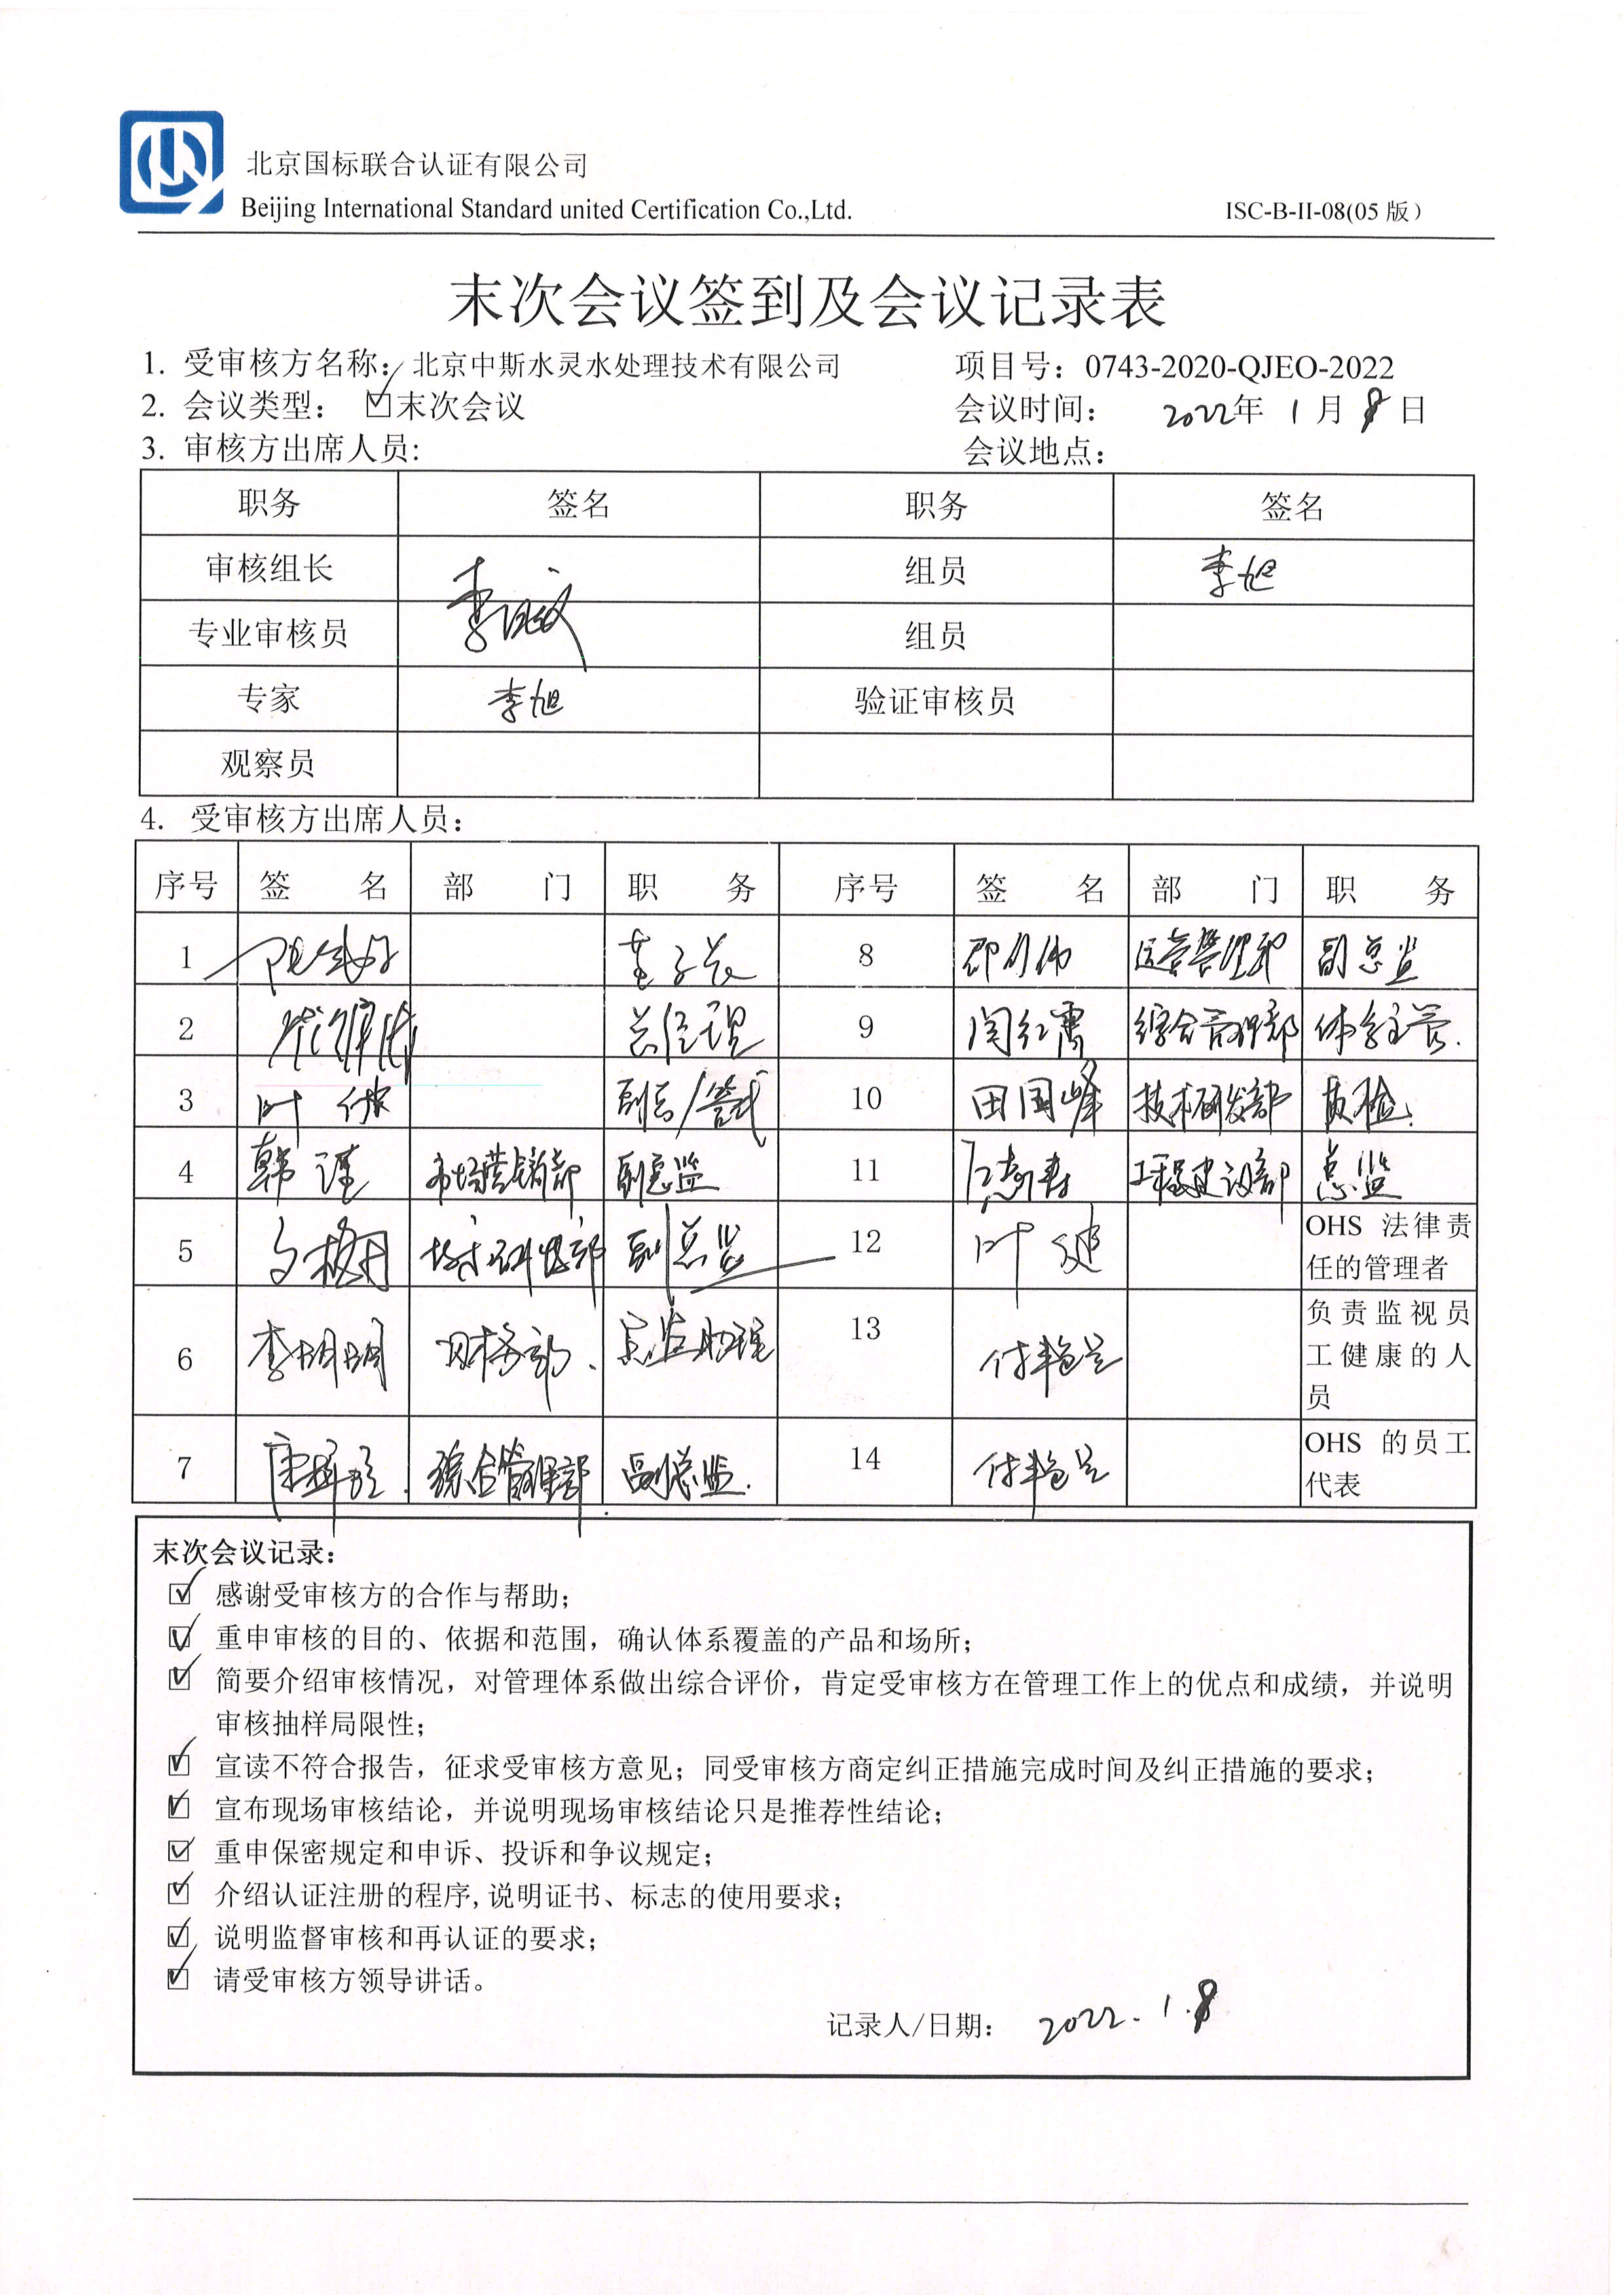 北京国标联合认证有限公司
Beijing International Standard united Certification Co.,Ltd.
ISC-B-II-08(05 版)
末次会议签到及会议记录表
1. 受审核方名称：北京中斯水灵水处理技术有限公司 项目号：0743-2020-QJEO-2022
2. 会议类型： ☑末次会议 会议时间： 2022年 1 月 8 日
3. 审核方出席人员: 会议地点：
职务 签名 职务 签名
审核组长 组员 李旭
专业审核员 组员
专家 李旭 验证审核员
观察员
4. 受审核方出席人员：
序号 签 名 部 门 职 务 序号 签 名 部 门 职 务
1 董事长 8 运营管理部 副总监
2 总经理 9 闫红霞 综合管理部 体系主管.
3 副总/管代 10 田国峰 技术研发部 质检.
4 韩谨 市场营销部 副总监 11 工程建设部 总监
5 技术研发部 副总监 12 OHS 法律责任的管理者
6 李明明 财务部. 总监助理 13 付艳昆 负责监视员工健康的人员
7 综合管理部 副总监. 14 付艳昆 OHS 的员工代表
末次会议记录：
☑ 感谢受审核方的合作与帮助；
☑ 重申审核的目的、依据和范围，确认体系覆盖的产品和场所；
☑ 简要介绍审核情况，对管理体系做出综合评价，肯定受审核方在管理工作上的优点和成绩，并说明
审核抽样局限性；
☑ 宣读不符合报告，征求受审核方意见；同受审核方商定纠正措施完成时间及纠正措施的要求；
☑ 宣布现场审核结论，并说明现场审核结论只是推荐性结论；
☑ 重申保密规定和申诉、投诉和争议规定；
☑ 介绍认证注册的程序,说明证书、标志的使用要求；
☑ 说明监督审核和再认证的要求；
☑ 请受审核方领导讲话。
记录人/日期： 2022.1.8